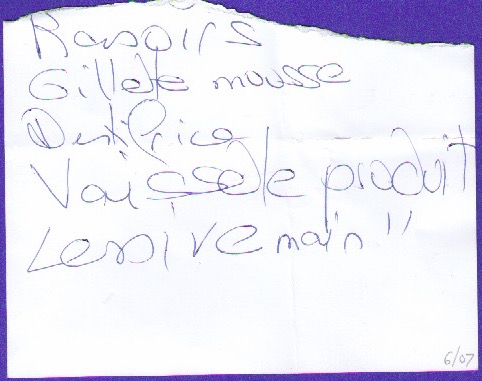 Rasoirs
Gillete mousse
Dentifrice
Vaissele produit
Lessive main !!
6/07